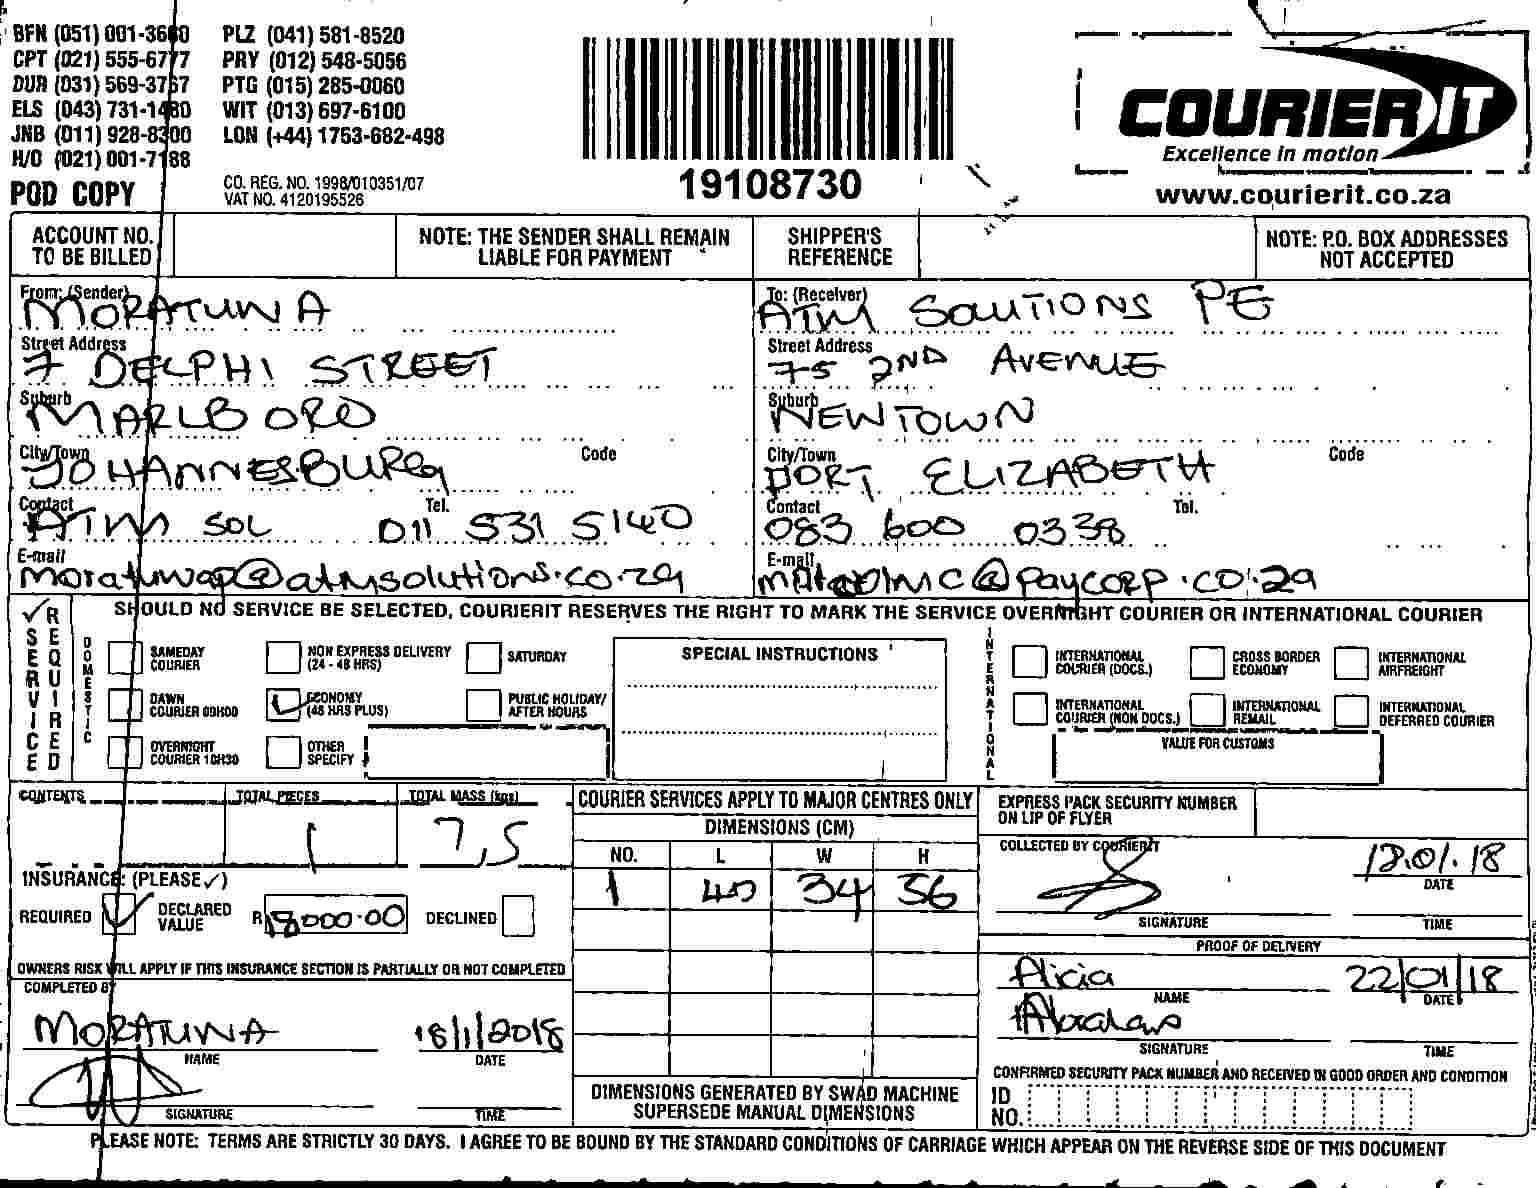 BFN (051) 001-3660 PLZ (041) 581-8520
CPT (021) 555-6777 PRY (012) 548-5056
DUR (031) 569-3767 PTG (015) 285-0060
ELS (043) 731-1480 WIT (013) 697-6100
JNB (011) 928-8300 LON (+44) 1753-682-498
H/O (021) 001-7188
POD COPY
CO. REG. NO. 1998/010351/07
VAT NO. 4120195526
19108730
COURIER IT
Excellence in motion
www.courierit.co.za
ACCOUNT NO. TO BE BILLED
NOTE: THE SENDER SHALL REMAIN LIABLE FOR PAYMENT
SHIPPER'S REFERENCE
NOTE: P.O. BOX ADDRESSES NOT ACCEPTED
From: (Sender)
MORATUWA
Street Address
7 DELPHI STREET
Suburb
MARLBORO
City/Town Code
JOHANNESBURG
Contact Tel.
ATM SOL 011 531 5140
E-mail
moratuwap@atmsolutions.co.za
To: (Receiver)
ATM SOLUTIONS PE
Street Address
75 2ND AVENUE
Suburb
NEWTOWN
City/Town Code
PORT ELIZABETH
Contact Tel.
083 600 0338
E-mail
@paycorp.co.za
✓ SERVICE REQUIRED
SHOULD NO SERVICE BE SELECTED, COURIERIT RESERVES THE RIGHT TO MARK THE SERVICE OVERNIGHT COURIER OR INTERNATIONAL COURIER
DOMESTIC
SAMEDAY COURIER
NON EXPRESS DELIVERY (24 - 48 HRS)
SATURDAY
DAWN COURIER 09H00
✓ ECONOMY (48 HRS PLUS)
PUBLIC HOLIDAY/ AFTER HOURS
OVERNIGHT COURIER 10H30
OTHER SPECIFY
SPECIAL INSTRUCTIONS
INTERNATIONAL
INTERNATIONAL COURIER (DOCS.)
CROSS BORDER ECONOMY
INTERNATIONAL AIRFREIGHT
INTERNATIONAL COURIER (NON DOCS.)
INTERNATIONAL REMAIL
INTERNATIONAL DEFERRED COURIER
VALUE FOR CUSTOMS
CONTENTS
TOTAL PIECES
1
TOTAL MASS (kgs)
7,5
INSURANCE: (PLEASE ✓)
REQUIRED ✓ DECLARED VALUE R 18000.00 DECLINED
OWNERS RISK WILL APPLY IF THIS INSURANCE SECTION IS PARTIALLY OR NOT COMPLETED
COMPLETED BY
MORATUWA 18/1/2018
NAME DATE
SIGNATURE TIME
COURIER SERVICES APPLY TO MAJOR CENTRES ONLY
DIMENSIONS (CM)
NO. L W H
1 40 34 36
DIMENSIONS GENERATED BY SWAD MACHINE SUPERSEDE MANUAL DIMENSIONS
EXPRESS PACK SECURITY NUMBER ON LIP OF FLYER
COLLECTED BY COURIERIT
18.01.18
DATE
SIGNATURE TIME
PROOF OF DELIVERY
Alicia 22/01/18
NAME DATE
Abrahams
SIGNATURE TIME
CONFIRMED SECURITY PACK NUMBER AND RECEIVED IN GOOD ORDER AND CONDITION
ID NO.
PLEASE NOTE: TERMS ARE STRICTLY 30 DAYS. I AGREE TO BE BOUND BY THE STANDARD CONDITIONS OF CARRIAGE WHICH APPEAR ON THE REVERSE SIDE OF THIS DOCUMENT